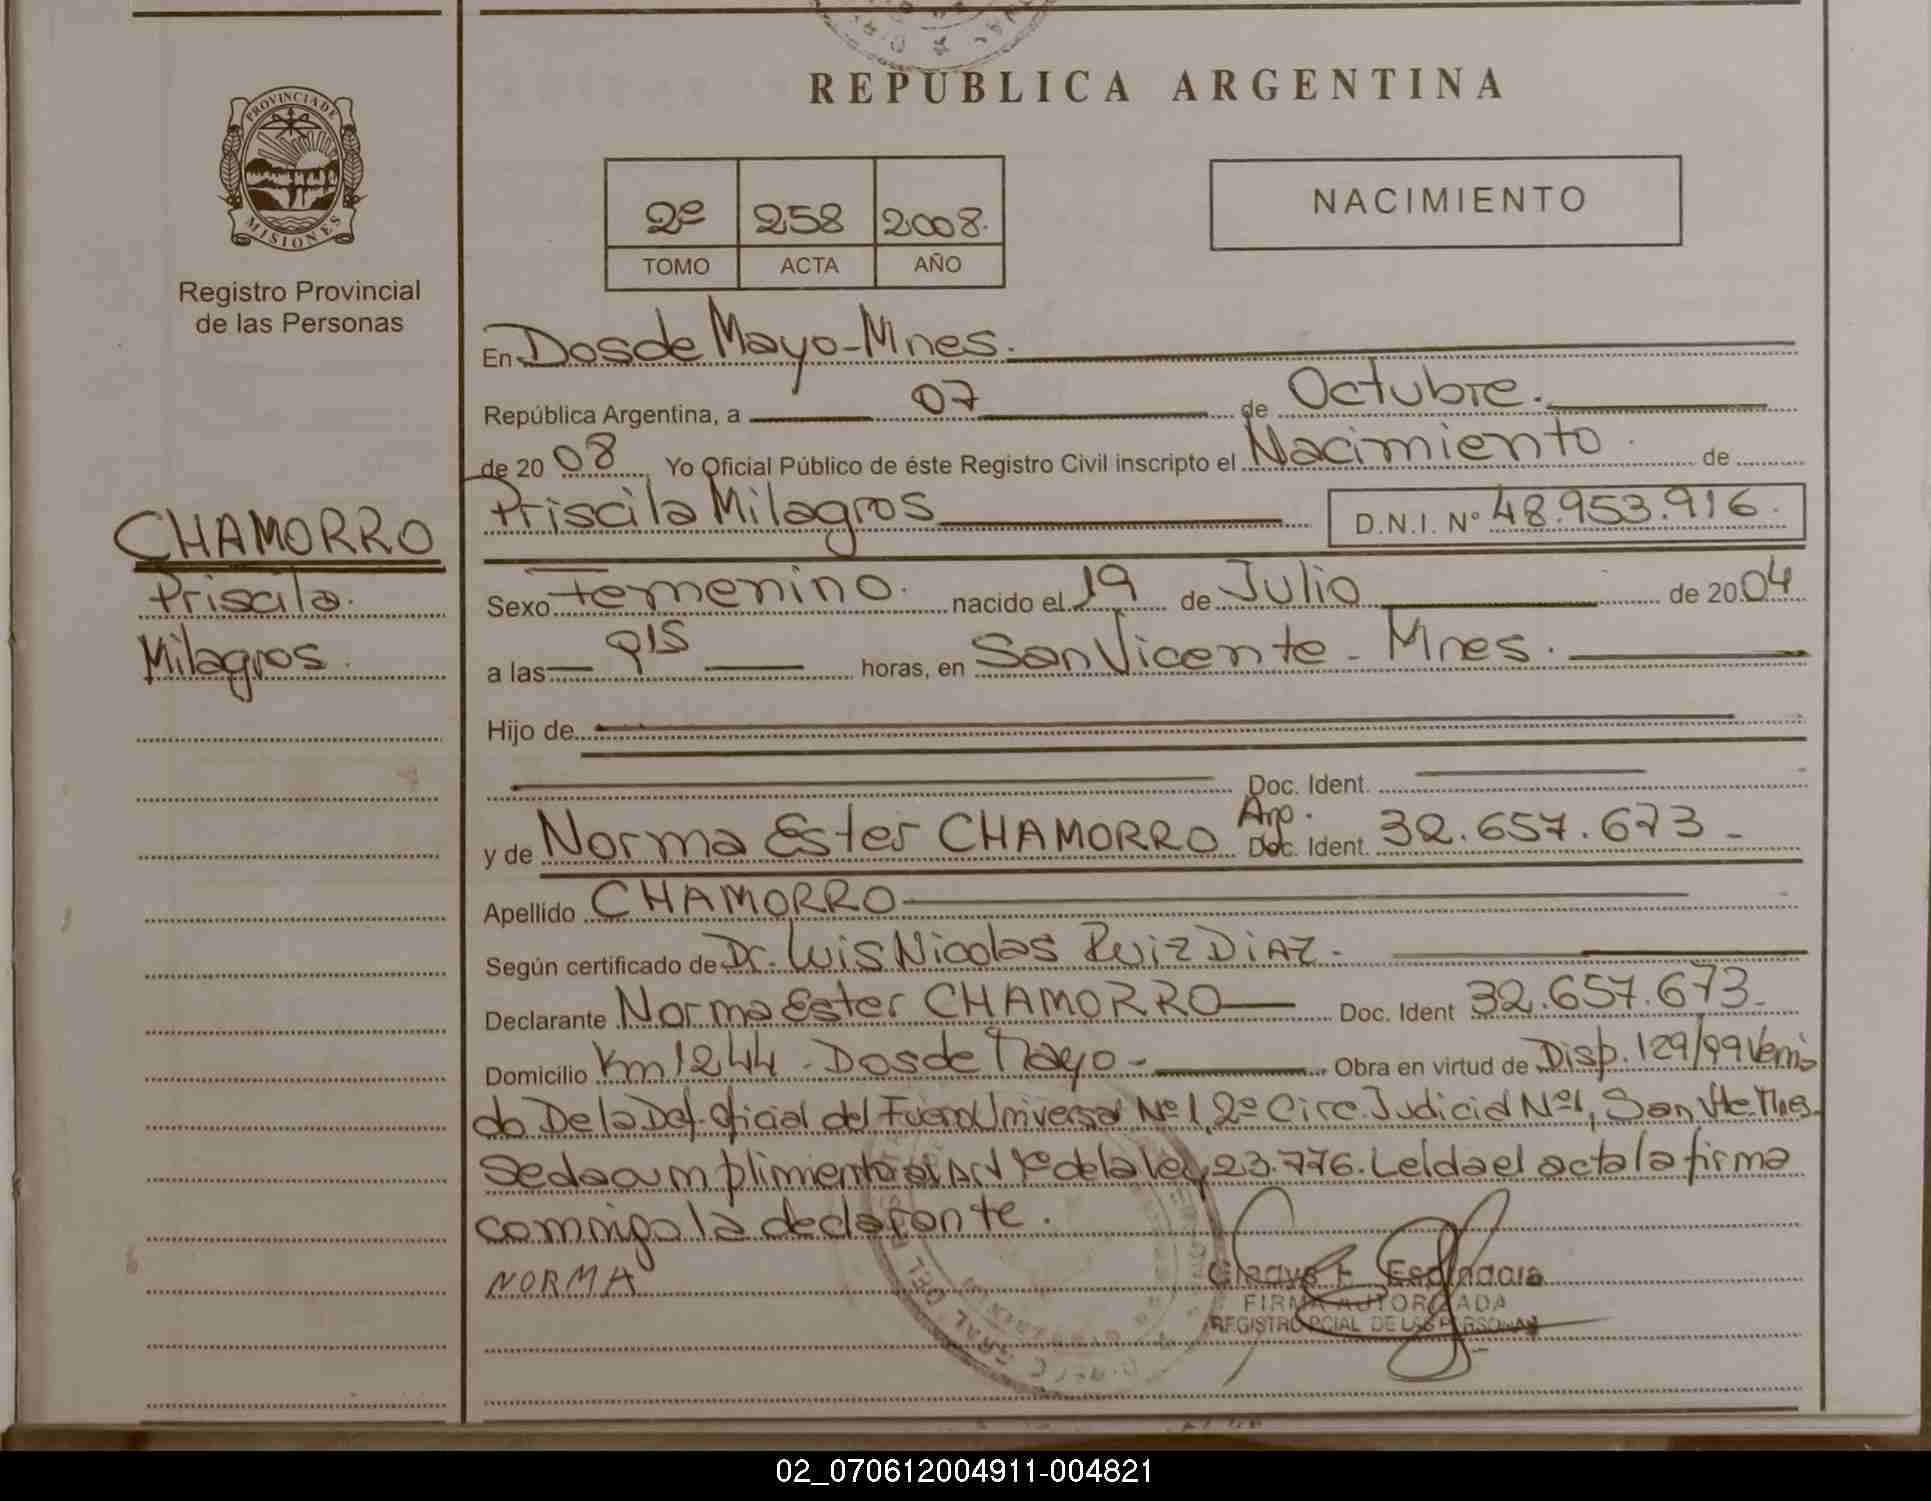 REPUBLICA ARGENTINA
PROVINCIA DE
MISIONES
Registro Provincial
de las Personas
2º 258 2008.
TOMO ACTA AÑO
NACIMIENTO
En Dos de Mayo - Mnes.
República Argentina, a 07 de Octubre.
de 20 08 Yo Oficial Público de éste Registro Civil inscripto el Nacimiento de
Priscila Milagros D.N.I. Nº 48.953.916.
CHAMORRO
Priscila
Milagros.
Sexo Femenino. nacido el 19 de Julio de 20 04
a las horas, en San Vicente - Mnes.
Hijo de
Doc. Ident.
y de Norma Ester CHAMORRO Arg. Doc. Ident. 32.657.673 -
Apellido CHAMORRO
Según certificado de Dr. Luis Nicolas Ruiz DiAZ.
Declarante Norma Ester CHAMORRO Doc. Ident 32.657.673.
Domicilio Km 1244 - Dos de Mayo - Obra en virtud de Disp. 129/99 Veni
do De la Def. oficial del Fuero Universal Nº 1, 2º Circ. Judicial Nº 1, San Vte. Mnes.
Se da cumplimiento al Art 1º de la ley 23.776. Leida el acta la firma
conmigo la declarante.
NORMA
Gladys F. Espindola
FIRMA AUTORIZADA
REGISTRO PCIAL DE LAS PERSONAS
02_070612004911-004821